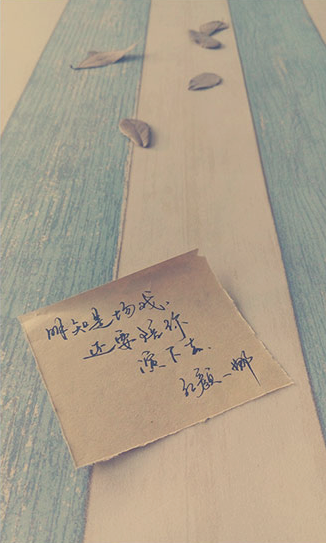 明知是场戏、
还要陪你
演下去、
红颜一娜